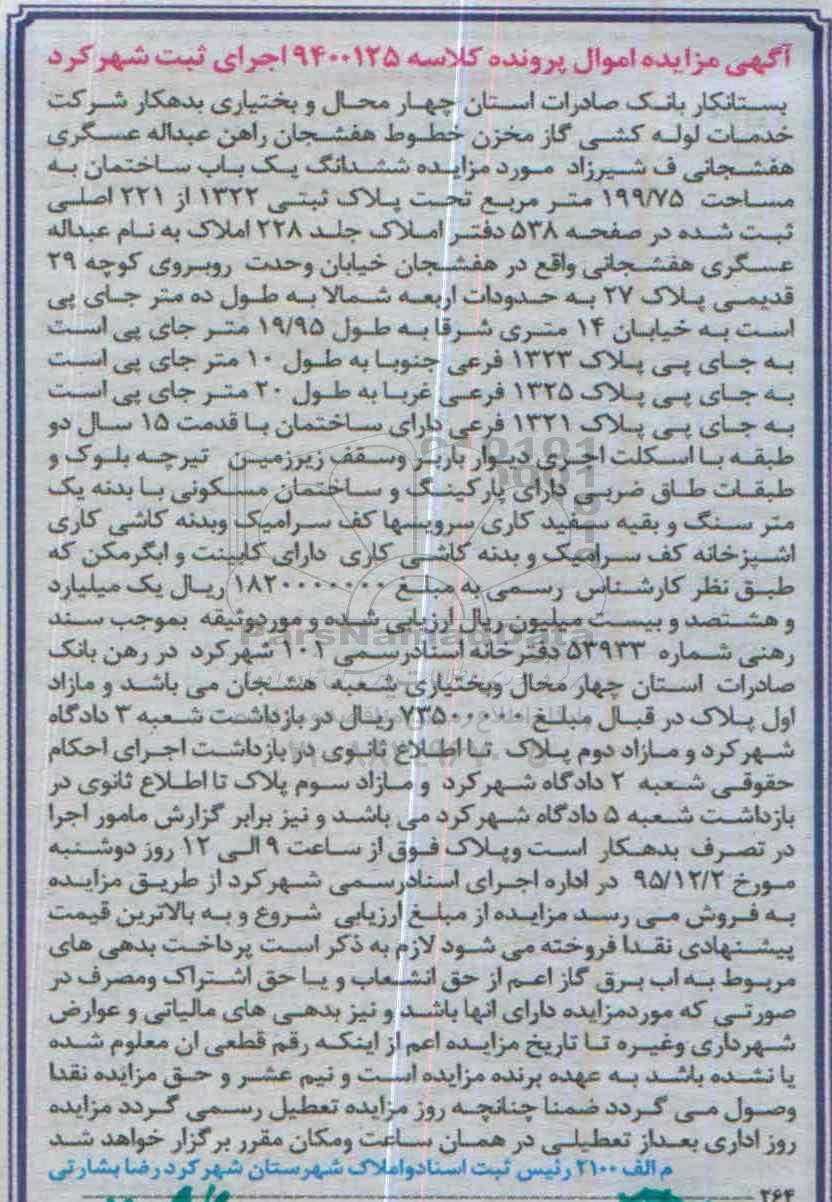 آگهی مزایده اموال پرونده کلاسه ۹۴۰۰۱۲۵ اجرای ثبت شهرکرد
بستانکار بانک صادرات استان چهار محال و بختیاری بدهکار شرکت
خدمات لوله کشی گاز مخزن خطوط هفشجان راهن عبداله عسگری
هفشجانی ف شیرزاد مورد مزایده ششدانگ یک باب ساختمان به
مساحت ۱۹۹/۷۵ متر مربع تحت پلاک ثبتی ۱۳۲۲ از ۲۲۱ اصلی
ثبت شده در صفحه ۵۳۸ دفتر املاک جلد ۲۲۸ املاک به نام عبداله
عسگری هفشجانی واقع در هفشجان خیابان وحدت روبروی کوچه ۲۹
قدیمی پلاک ۲۷ به حدودات اربعه شمالا به طول ده متر جای پی
است به خیابان ۱۴ متری شرقا به طول ۱۹/۹۵ متر جای پی است
به جای پی پلاک ۱۳۲۳ فرعی جنوبا به طول ۱۰ متر جای پی است
به جای پی پلاک ۱۳۲۵ فرعی غربا به طول ۲۰ متر جای پی است
به جای پی پلاک ۱۳۲۱ فرعی دارای ساختمان با قدمت ۱۵ سال دو
طبقه با اسکلت اجری دیوار باربر وسقف زیرزمین تیرچه بلوک و
طبقات طاق ضربی دارای پارکینگ و ساختمان مسکونی با بدنه یک
متر سنگ و بقیه سفید کاری سرویسها کف سرامیک وبدنه کاشی کاری
اشپزخانه کف سرامیک و بدنه کاشی کاری دارای کابینت و ابگرمکن که
طبق نظر کارشناس رسمی به مبلغ ۱۸۲۰۰۰۰۰۰۰ ریال یک میلیارد
و هشتصد و بیست میلیون ریال ارزیابی شده و موردوثیقه بموجب سند
رهنی شماره ۵۳۹۳۳ دفترخانه اسنادرسمی ۱۰۱ شهرکرد در رهن بانک
صادرات استان چهار محال وبختیاری شعبه هشجان می باشد و مازاد
اول پلاک در قبال مبلغ ۷۳۵۰۰۰۰۰ ریال در بازداشت شعبه ۳ دادگاه
شهرکرد و مازاد دوم پلاک تا اطلاع ثانوی در بازداشت اجرای احکام
حقوقی شعبه ۲ دادگاه شهرکرد و مازاد سوم پلاک تا اطلاع ثانوی در
بازداشت شعبه ۵ دادگاه شهرکرد می باشد و نیز برابر گزارش مامور اجرا
در تصرف بدهکار است وپلاک فوق از ساعت ۹ الی ۱۲ روز دوشنبه
مورخ ۹۵/۱۲/۲ در اداره اجرای اسنادرسمی شهرکرد از طریق مزایده
به فروش می رسد مزایده از مبلغ ارزیابی شروع و به بالاترین قیمت
پیشنهادی نقدا فروخته می شود لازم به ذکر است پرداخت بدهی های
مربوط به اب برق گاز اعم از حق انشعاب و یا حق اشتراک ومصرف در
صورتی که موردمزایده دارای انها باشد و نیز بدهی های مالیاتی و عوارض
شهرداری وغیره تا تاریخ مزایده اعم از اینکه رقم قطعی ان معلوم شده
یا نشده باشد به عهده برنده مزایده است و نیم عشر و حق مزایده نقدا
وصول می گردد ضمنا چنانچه روز مزایده تعطیل رسمی گردد مزایده
روز اداری بعداز تعطیلی در همان ساعت ومکان مقرر برگزار خواهد شد
م الف ۲۱۰۰ رئیس ثبت اسنادواملاک شهرستان شهرکرد رضا بشارتی
۲۶۴
ParsNamadData